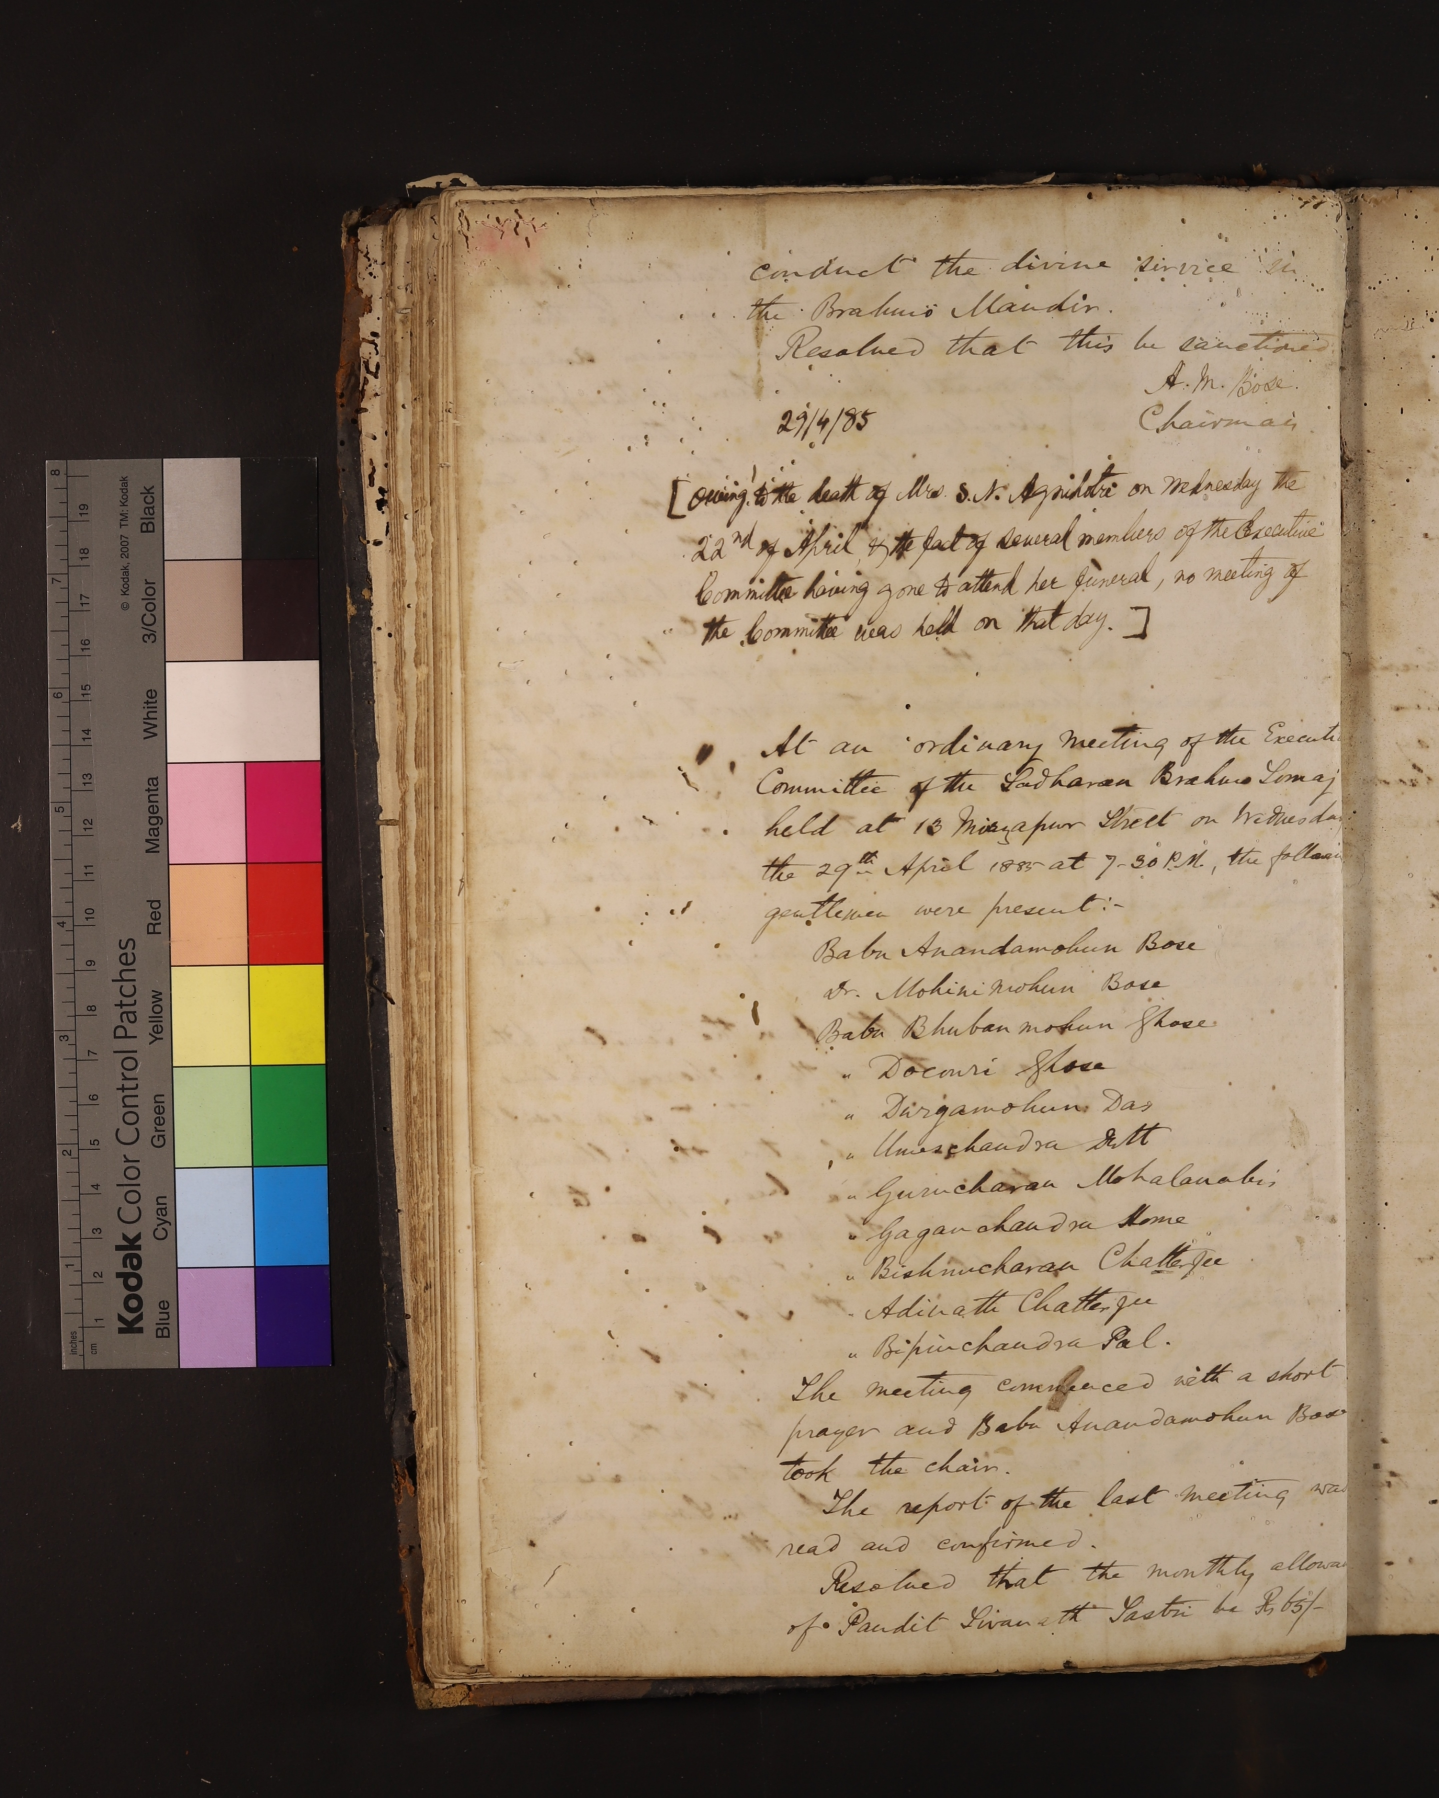 conduct the divine service in
the Brahmo Mandir.
Resolved that this be sanctioned
A. M. Bose.
29/4/85 Chairman
[Owing to the death of Mrs. S. N. Agnihotri on Wednesday the
22nd of April & the fact of several members of the Executive
Committee having gone to attend her funeral, no meeting of
the Committee was held on that day.]
At an ordinary meeting of the Executi
Committee of the Sadharan Brahmo Somaj
held at 13 Mirzapur Street on Wednesday
the 29th April 1885 at 7-30 P.M., the followin
gentlemen were present:-
Babu Anandamohun Bose
Dr. Mohinimohun Bose
Babu Bhubanmohun Ghose
" Docowri Ghose
" Durgamohun Das
" Umeschandra Dutt
" Gurucharan Mohalanobis
" Gaganchandra Home
" Bishnucharan Chatterjee
" Adinath Chatterjee
" Bipinchandra Pal.
The meeting commenced with a short
prayer and Babu Anandamohun Bose
took the chair.
The report of the last meeting was
read and confirmed.
Resolved that the monthly allowa
of Pandit Sivanath Sastri be Rs 65/-
Kodak Color Control Patches
© Kodak, 2007 TM: Kodak
Blue Cyan Green Yellow Red Magenta White 3/Color Black
inches 1 2 3 4 5 6 7 8
cm 1 2 3 4 5 6 7 8 9 10 11 12 13 14 15 16 17 18 19